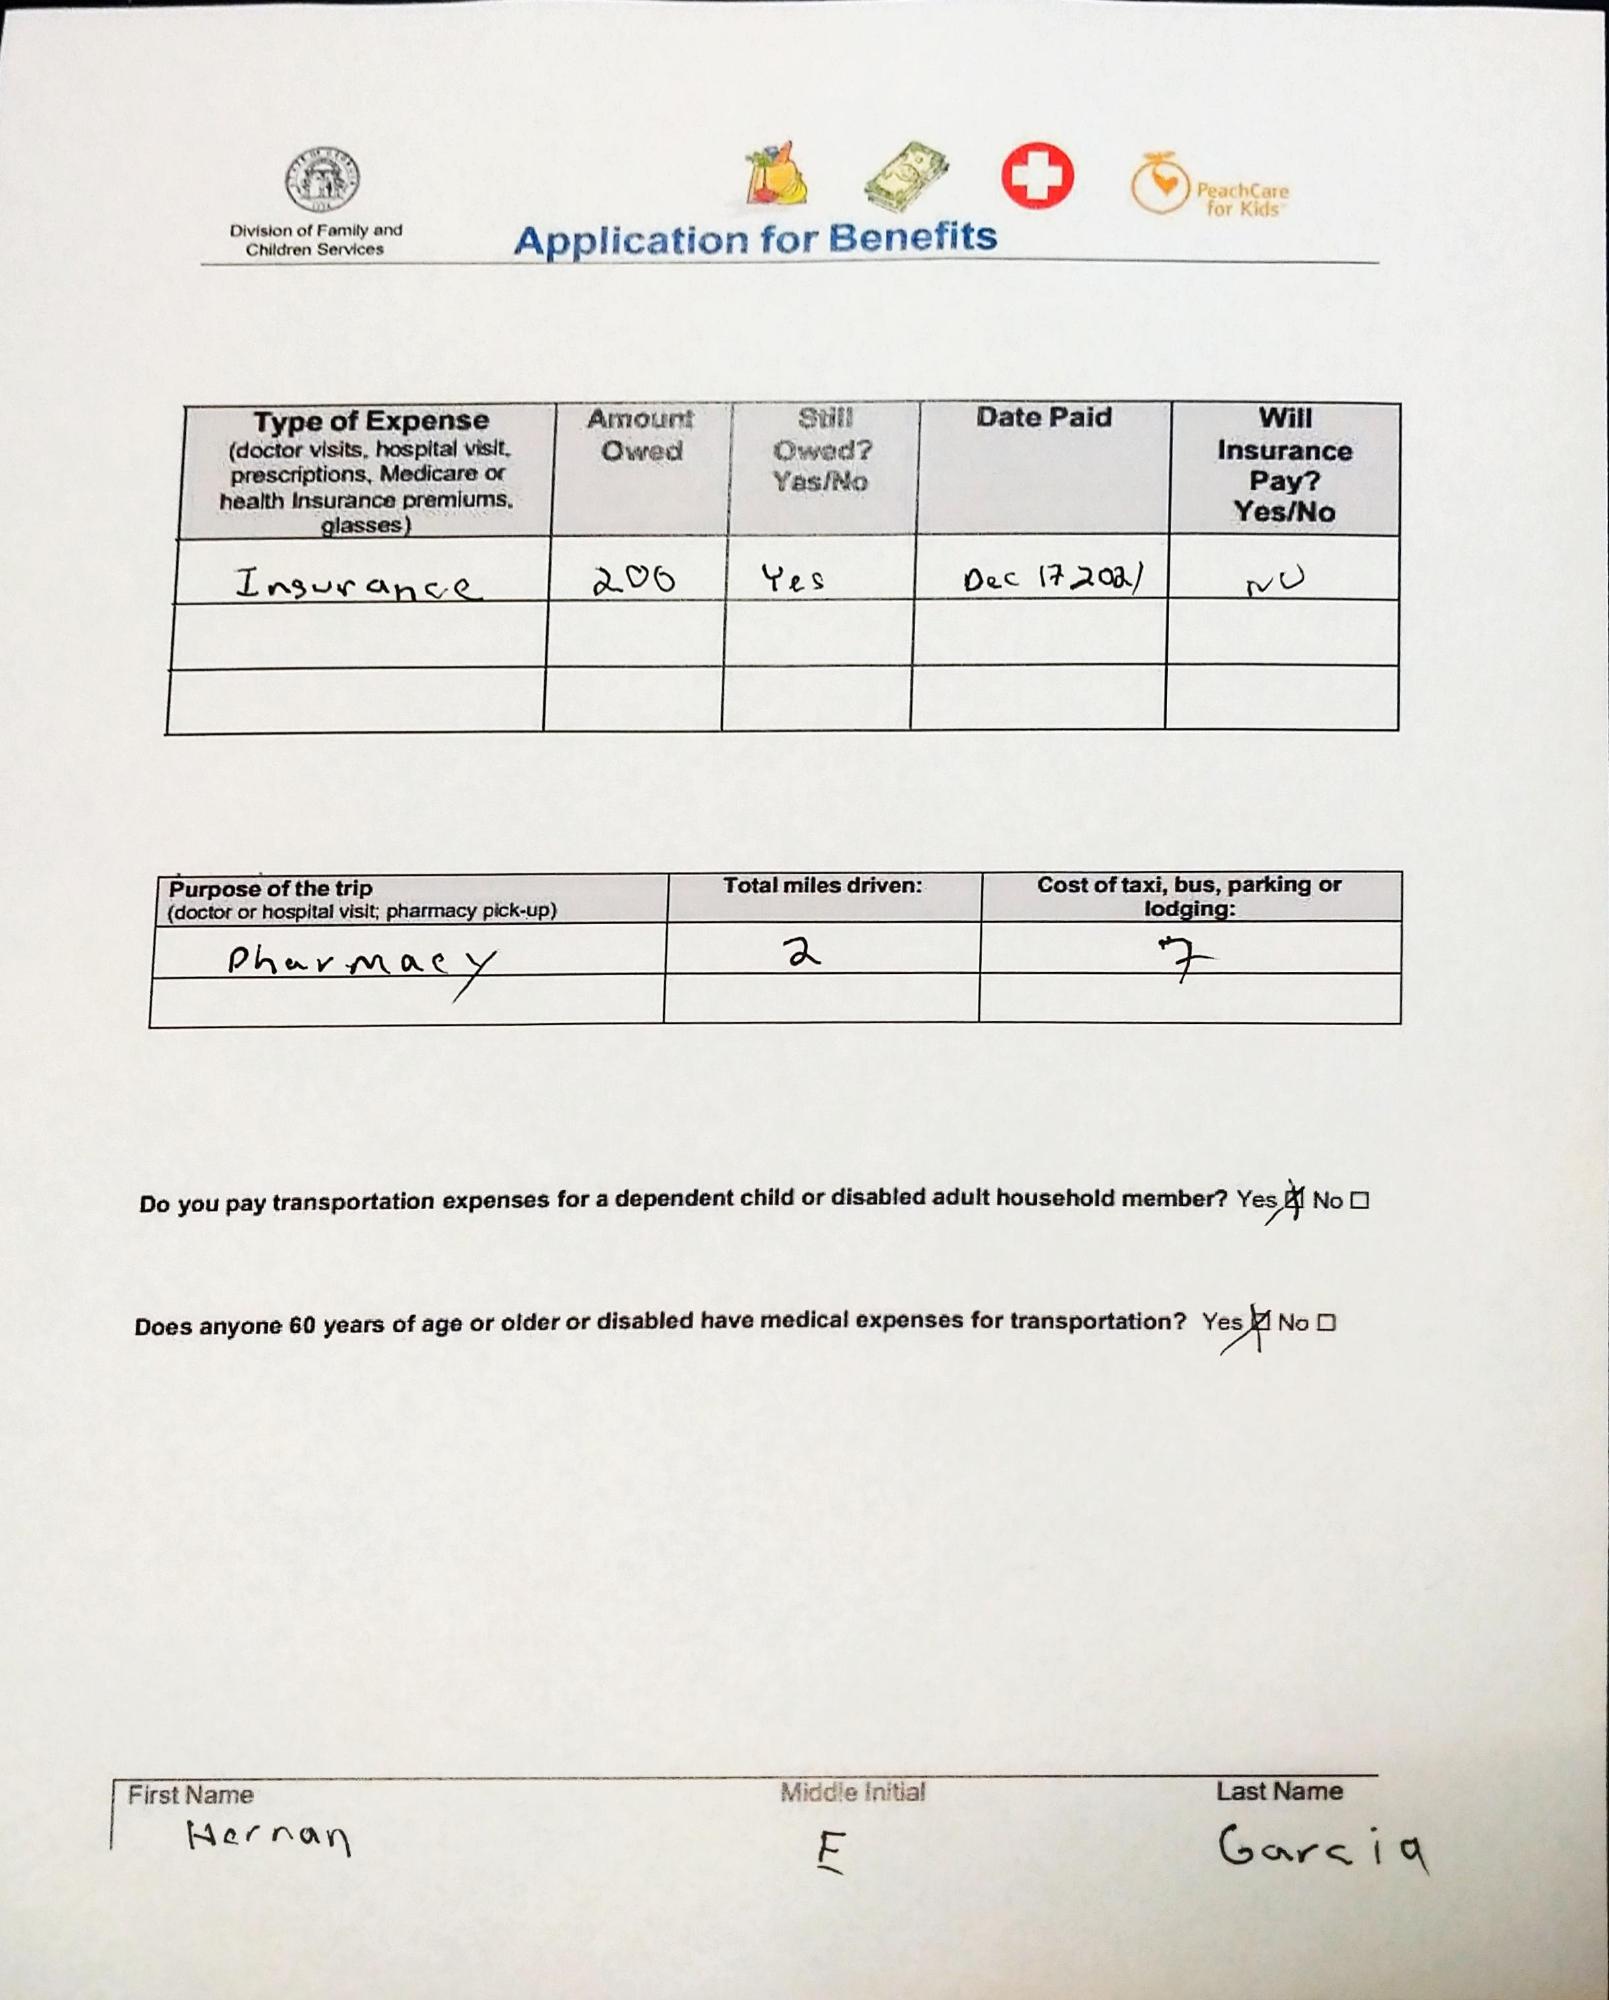 Division of Family and
Children Services
Application for Benefits
PeachCare
for Kids
Type of Expense
(doctor visits, hospital visit,
prescriptions, Medicare or
health Insurance premiums,
glasses)
Amount
Owed
Still
Owed?
Yes/No
Date Paid
Will
Insurance
Pay?
Yes/No
Insurance 200 Yes Dec 17 2021 NO
Purpose of the trip
(doctor or hospital visit; pharmacy pick-up)
Total miles driven:
Cost of taxi, bus, parking or
lodging:
Pharmacy 2 7
Do you pay transportation expenses for a dependent child or disabled adult household member? Yes ☒ No ☐
Does anyone 60 years of age or older or disabled have medical expenses for transportation? Yes ☒ No ☐
First Name Middle Initial Last Name
Hernan E Garcia